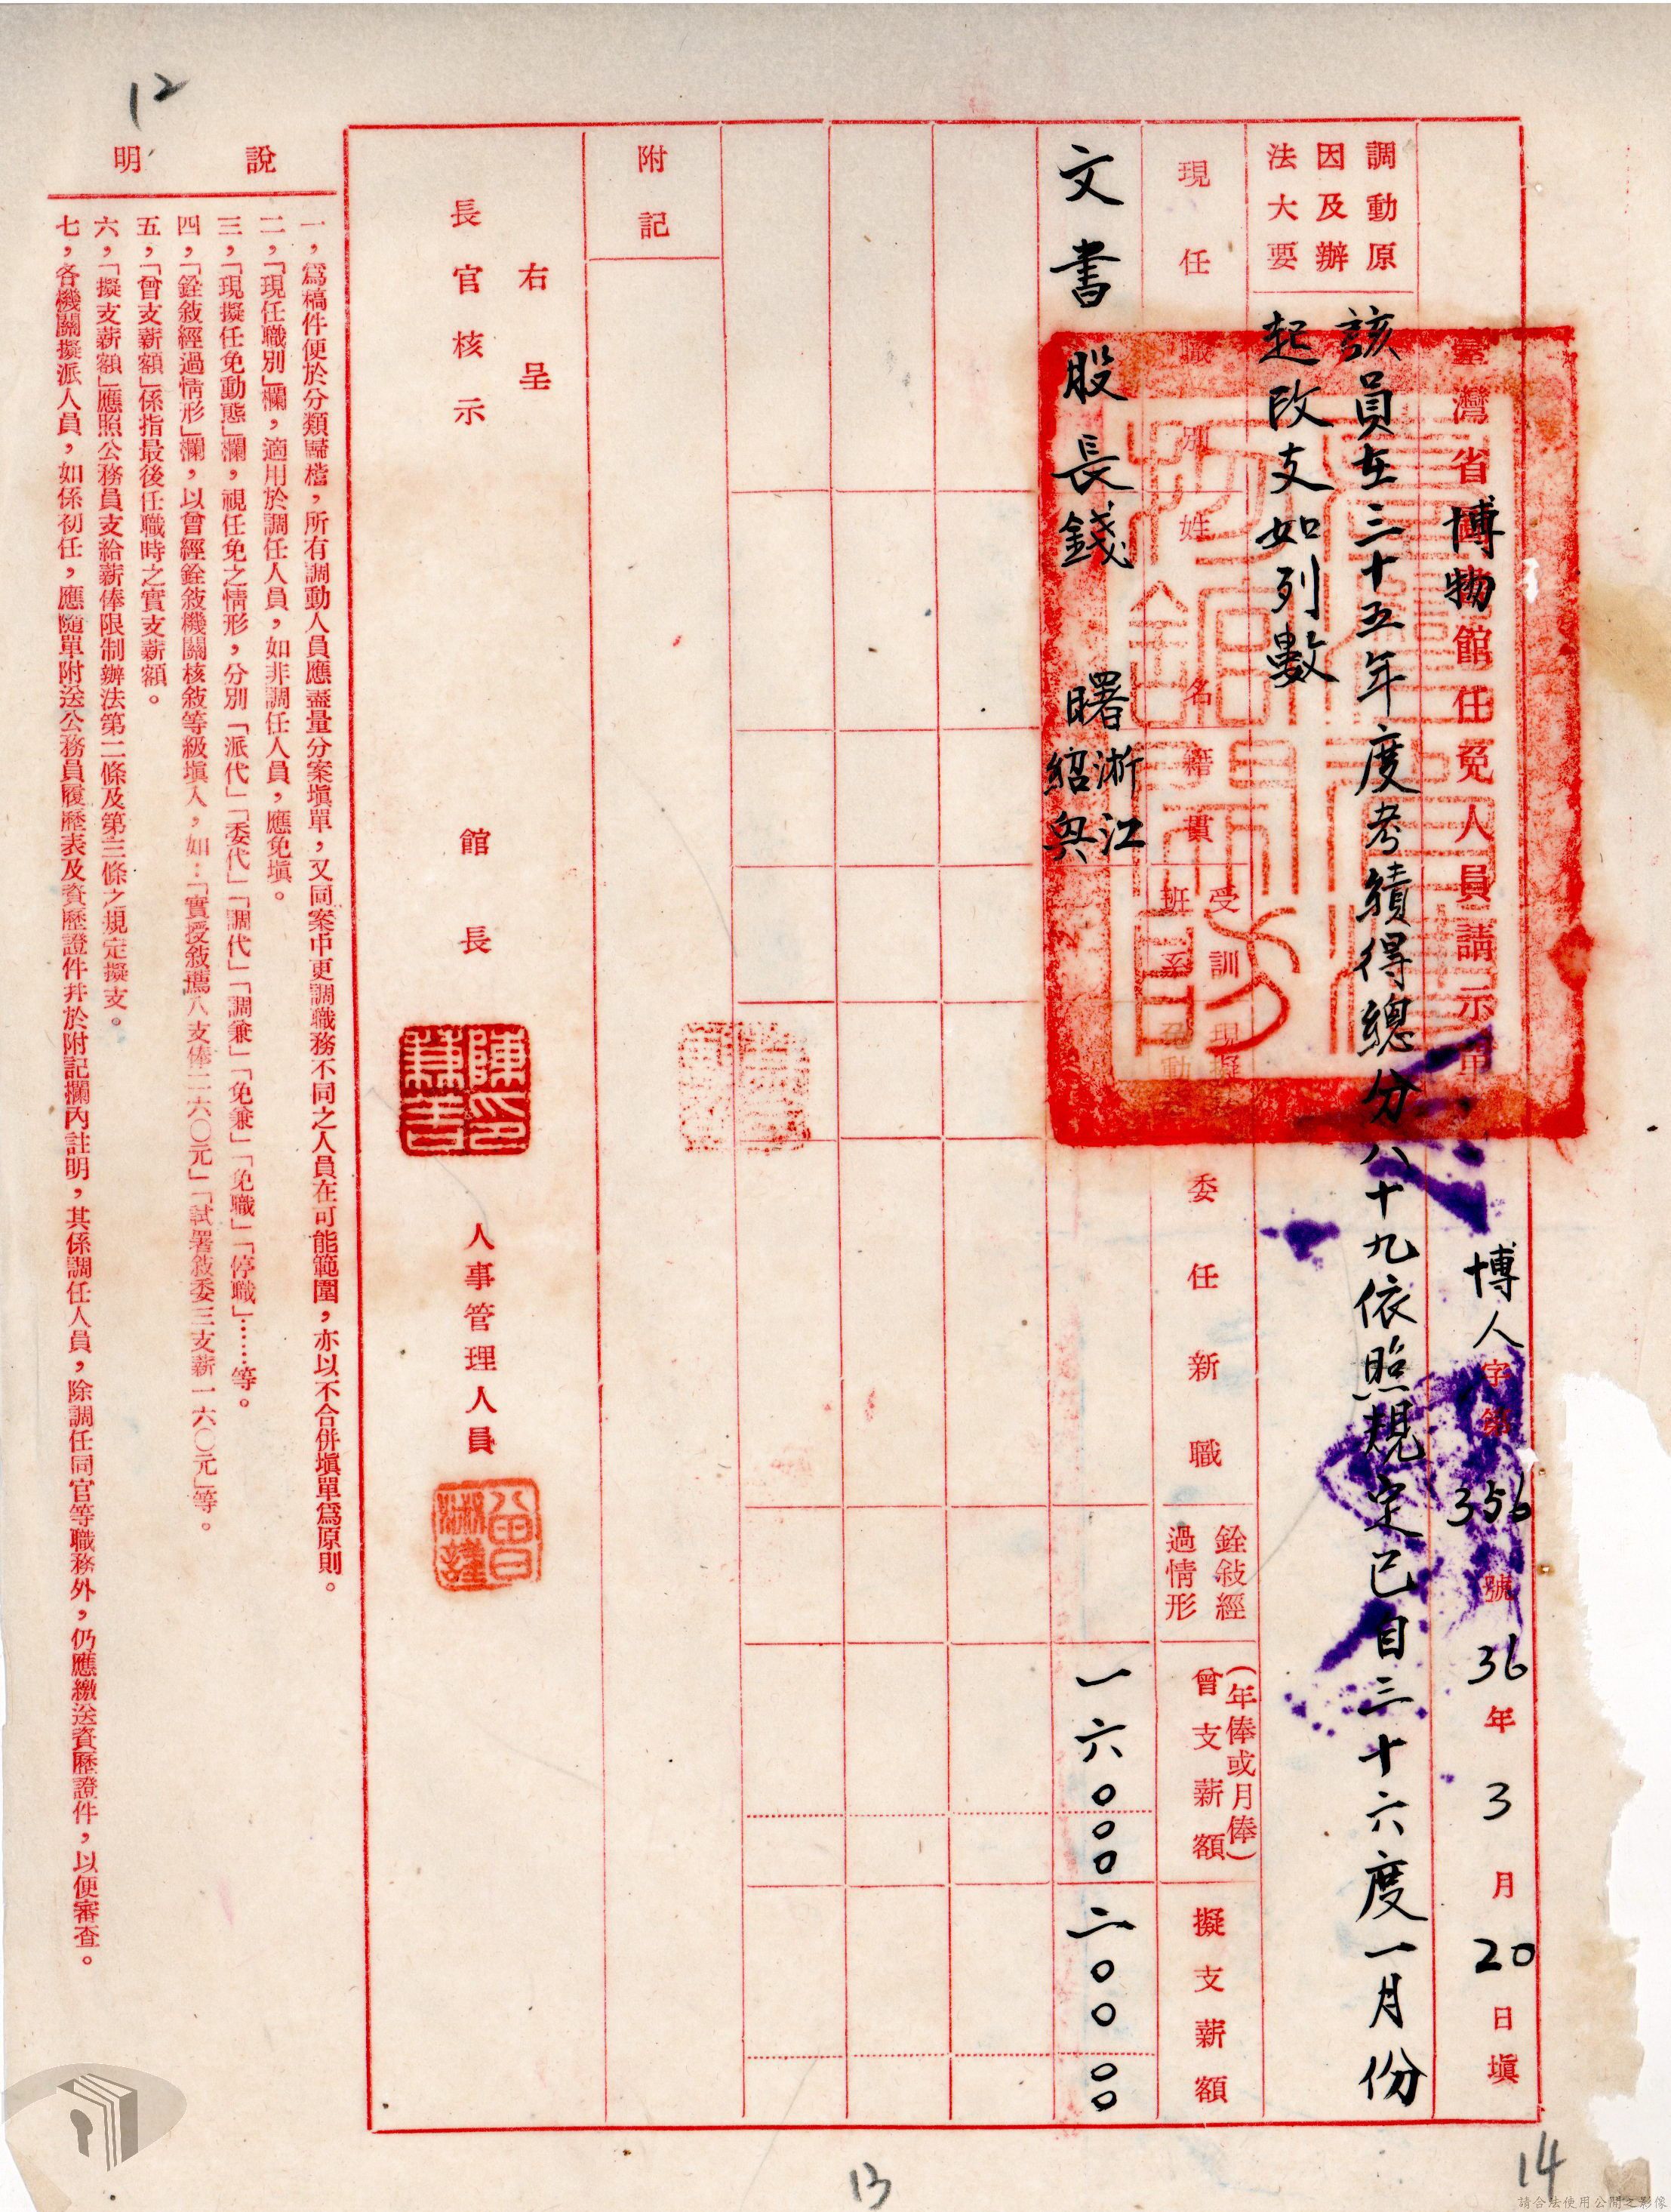 12
臺灣省博物館任免人員請示單
博人字第356號
36年3月20日填
調動原因及辦法大要
該員在三十五年度考績得總分八十九依照規定已自三十六度一月份
起改支如列數
現任職別
姓名
籍貫
受訓班系
委任新職
銓敍經過情形
(年俸或月俸)
曾支薪額
擬支薪額
文書股長
錢曙
浙江
紹興
一六〇〇〇
二〇〇〇〇
附記
右呈
長官核示
館長
人事管理人員
說明
一，爲稿件便於分類歸檔，所有調動人員應盡量分案塡單，又同案中更調職務不同之人員在可能範圍，亦以不合併塡單爲原則。
二，「現任職別」欄，適用於調任人員，如非調任人員，應免塡。
三，「現擬任免動態」欄，視任免之情形，分別「派代」「委代」「調代」「調兼」「免兼」「免職」「停職」……等。
四，「銓敍經過情形」欄，以曾經銓敍機關核敍等級塡入，如：「實授敍薦八支俸二六〇元」「試署敍委三支薪一六〇元」等。
五，「曾支薪額」係指最後任職時之實支薪額。
六，「擬支薪額」應照公務員支給薪俸限制辦法第二條及第三條之規定擬支。
七，各機關擬派人員，如係初任，應隨單附送公務員履歷表及資歷證件幷於附記欄內註明，其係調任人員，除調任同官等職務外，仍應繳送資歷證件，以便審查。
13
14
請合法使用公開之影像